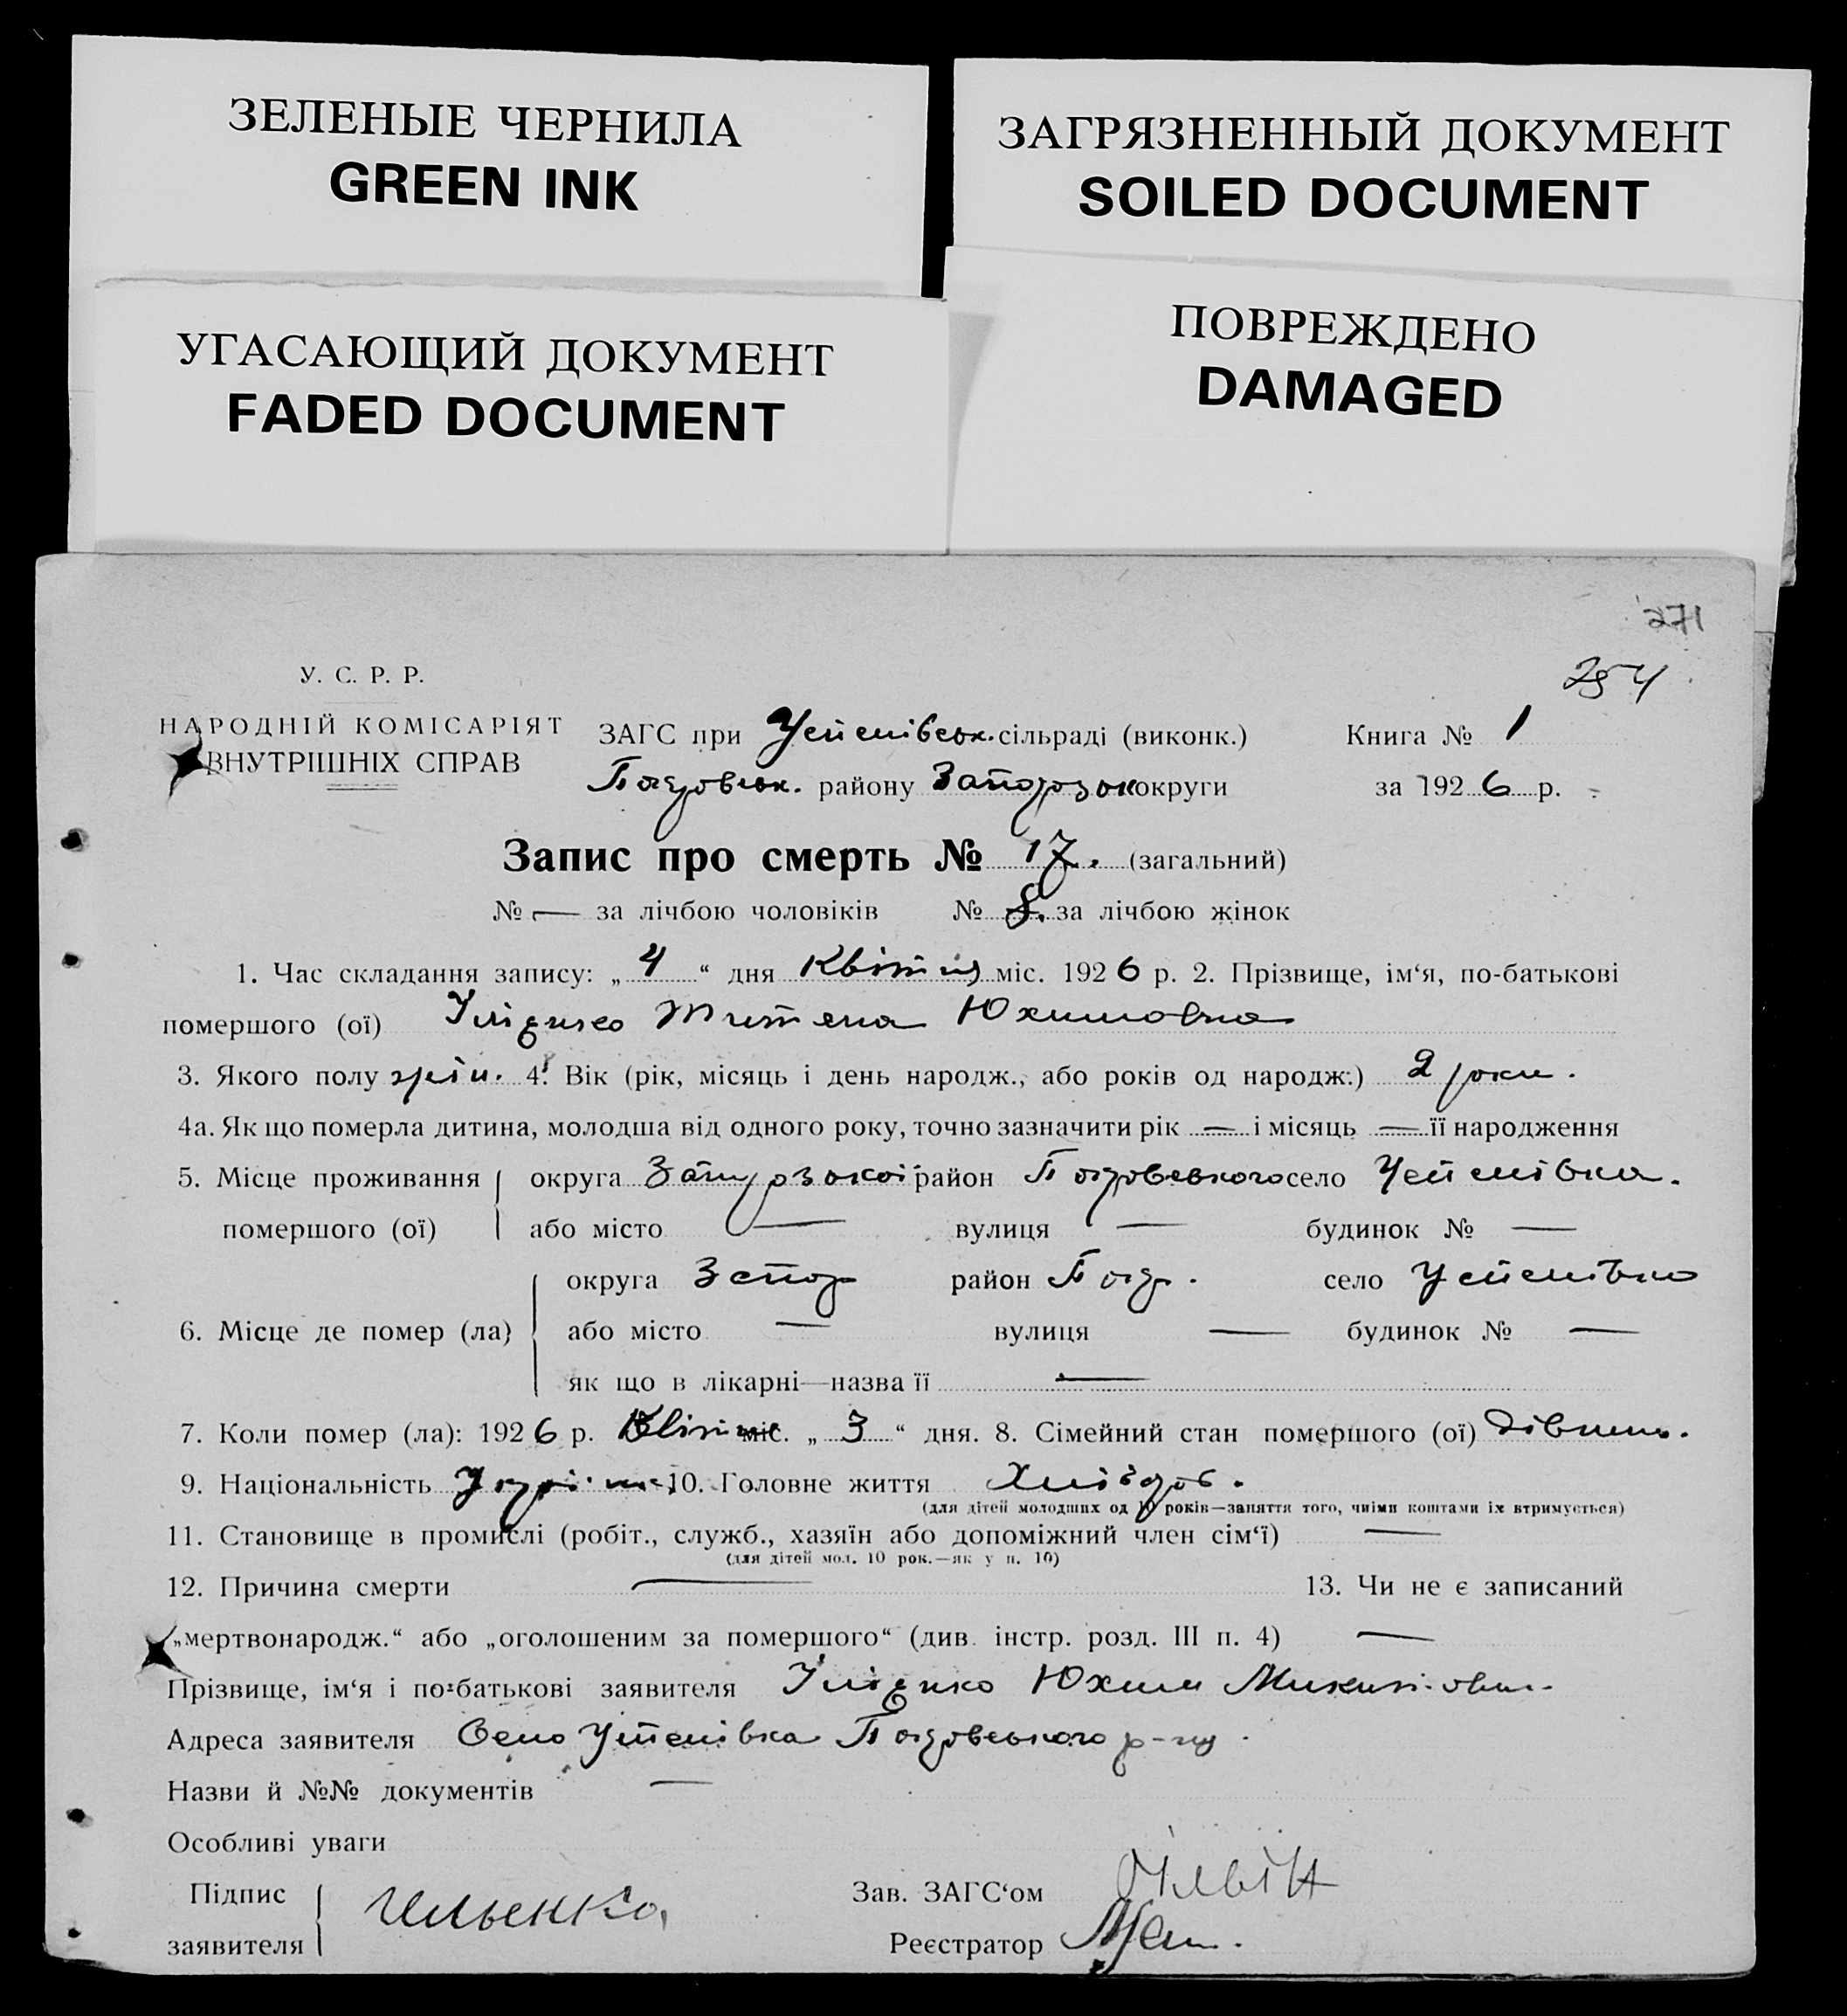 ЗЕЛЕНЫЕ ЧЕРНИЛА
GREEN INK
ЗАГРЯЗНЕННЫЙ ДОКУМЕНТ
SOILED DOCUMENT
УГАСАЮЩИЙ ДОКУМЕНТ
FADED DOCUMENT
ПОВРЕЖДЕНО
DAMAGED
271
254
У. С. Р. Р.
НАРОДНІЙ КОМІСАРІЯТ
ВНУТРІШНІХ СПРАВ
ЗАГС при Успенівськ. сільраді (виконк.) Книга № 1
району Запорізьк округи за 1926 р.
Запис про смерть № 17. (загальний)
№ — за лічбою чоловіків № 8. за лічбою жінок
1. Час складання запису: „ 4 “ дня Квітня міс. 1926 р. 2. Прізвище, ім‘я, по-батькові
помершого (ої) Титяна Юхимовна
3. Якого полу жін. 4. Вік (рік, місяць і день народж., або років од народж.) 2 роки.
4а. Як що померла дитина, молодша від одного року, точно зазначити рік — і місяць — її народження
5. Місце проживання округа район село Успенівка.
помершого (ої) або місто — вулиця — будинок № —
округа Запор район село Успенівка
6. Місце де помер (ла) або місто — вулиця — будинок № —
як що в лікарні—назва її —
7. Коли помер (ла): 1926 р. Квітня міс. „ 3 “ дня. 8. Сімейний стан помершого (ої)
9. Національність 10. Головне життя Хлібороб.
(для дітей молодших од 10 років—заняття того, чиїми коштами їх втримується)
11. Становище в промислі (робіт., служб., хазяїн або допоміжний член сім‘ї) —
(для дітей мол. 10 рок.—як у п. 10)
12. Причина смерти — 13. Чи не є записаний
„мертвонародж.“ або „оголошеним за помершого“ (див. інстр. розд. III п. 4) —
Прізвище, ім‘я і по-батькові заявителя Юхим
Адреса заявителя Село Успенівка р-ну.
Назви й №№ документів —
Особливі уваги
Підпис
заявителя Ильенко
Зав. ЗАГС‘ом
Реєстратор